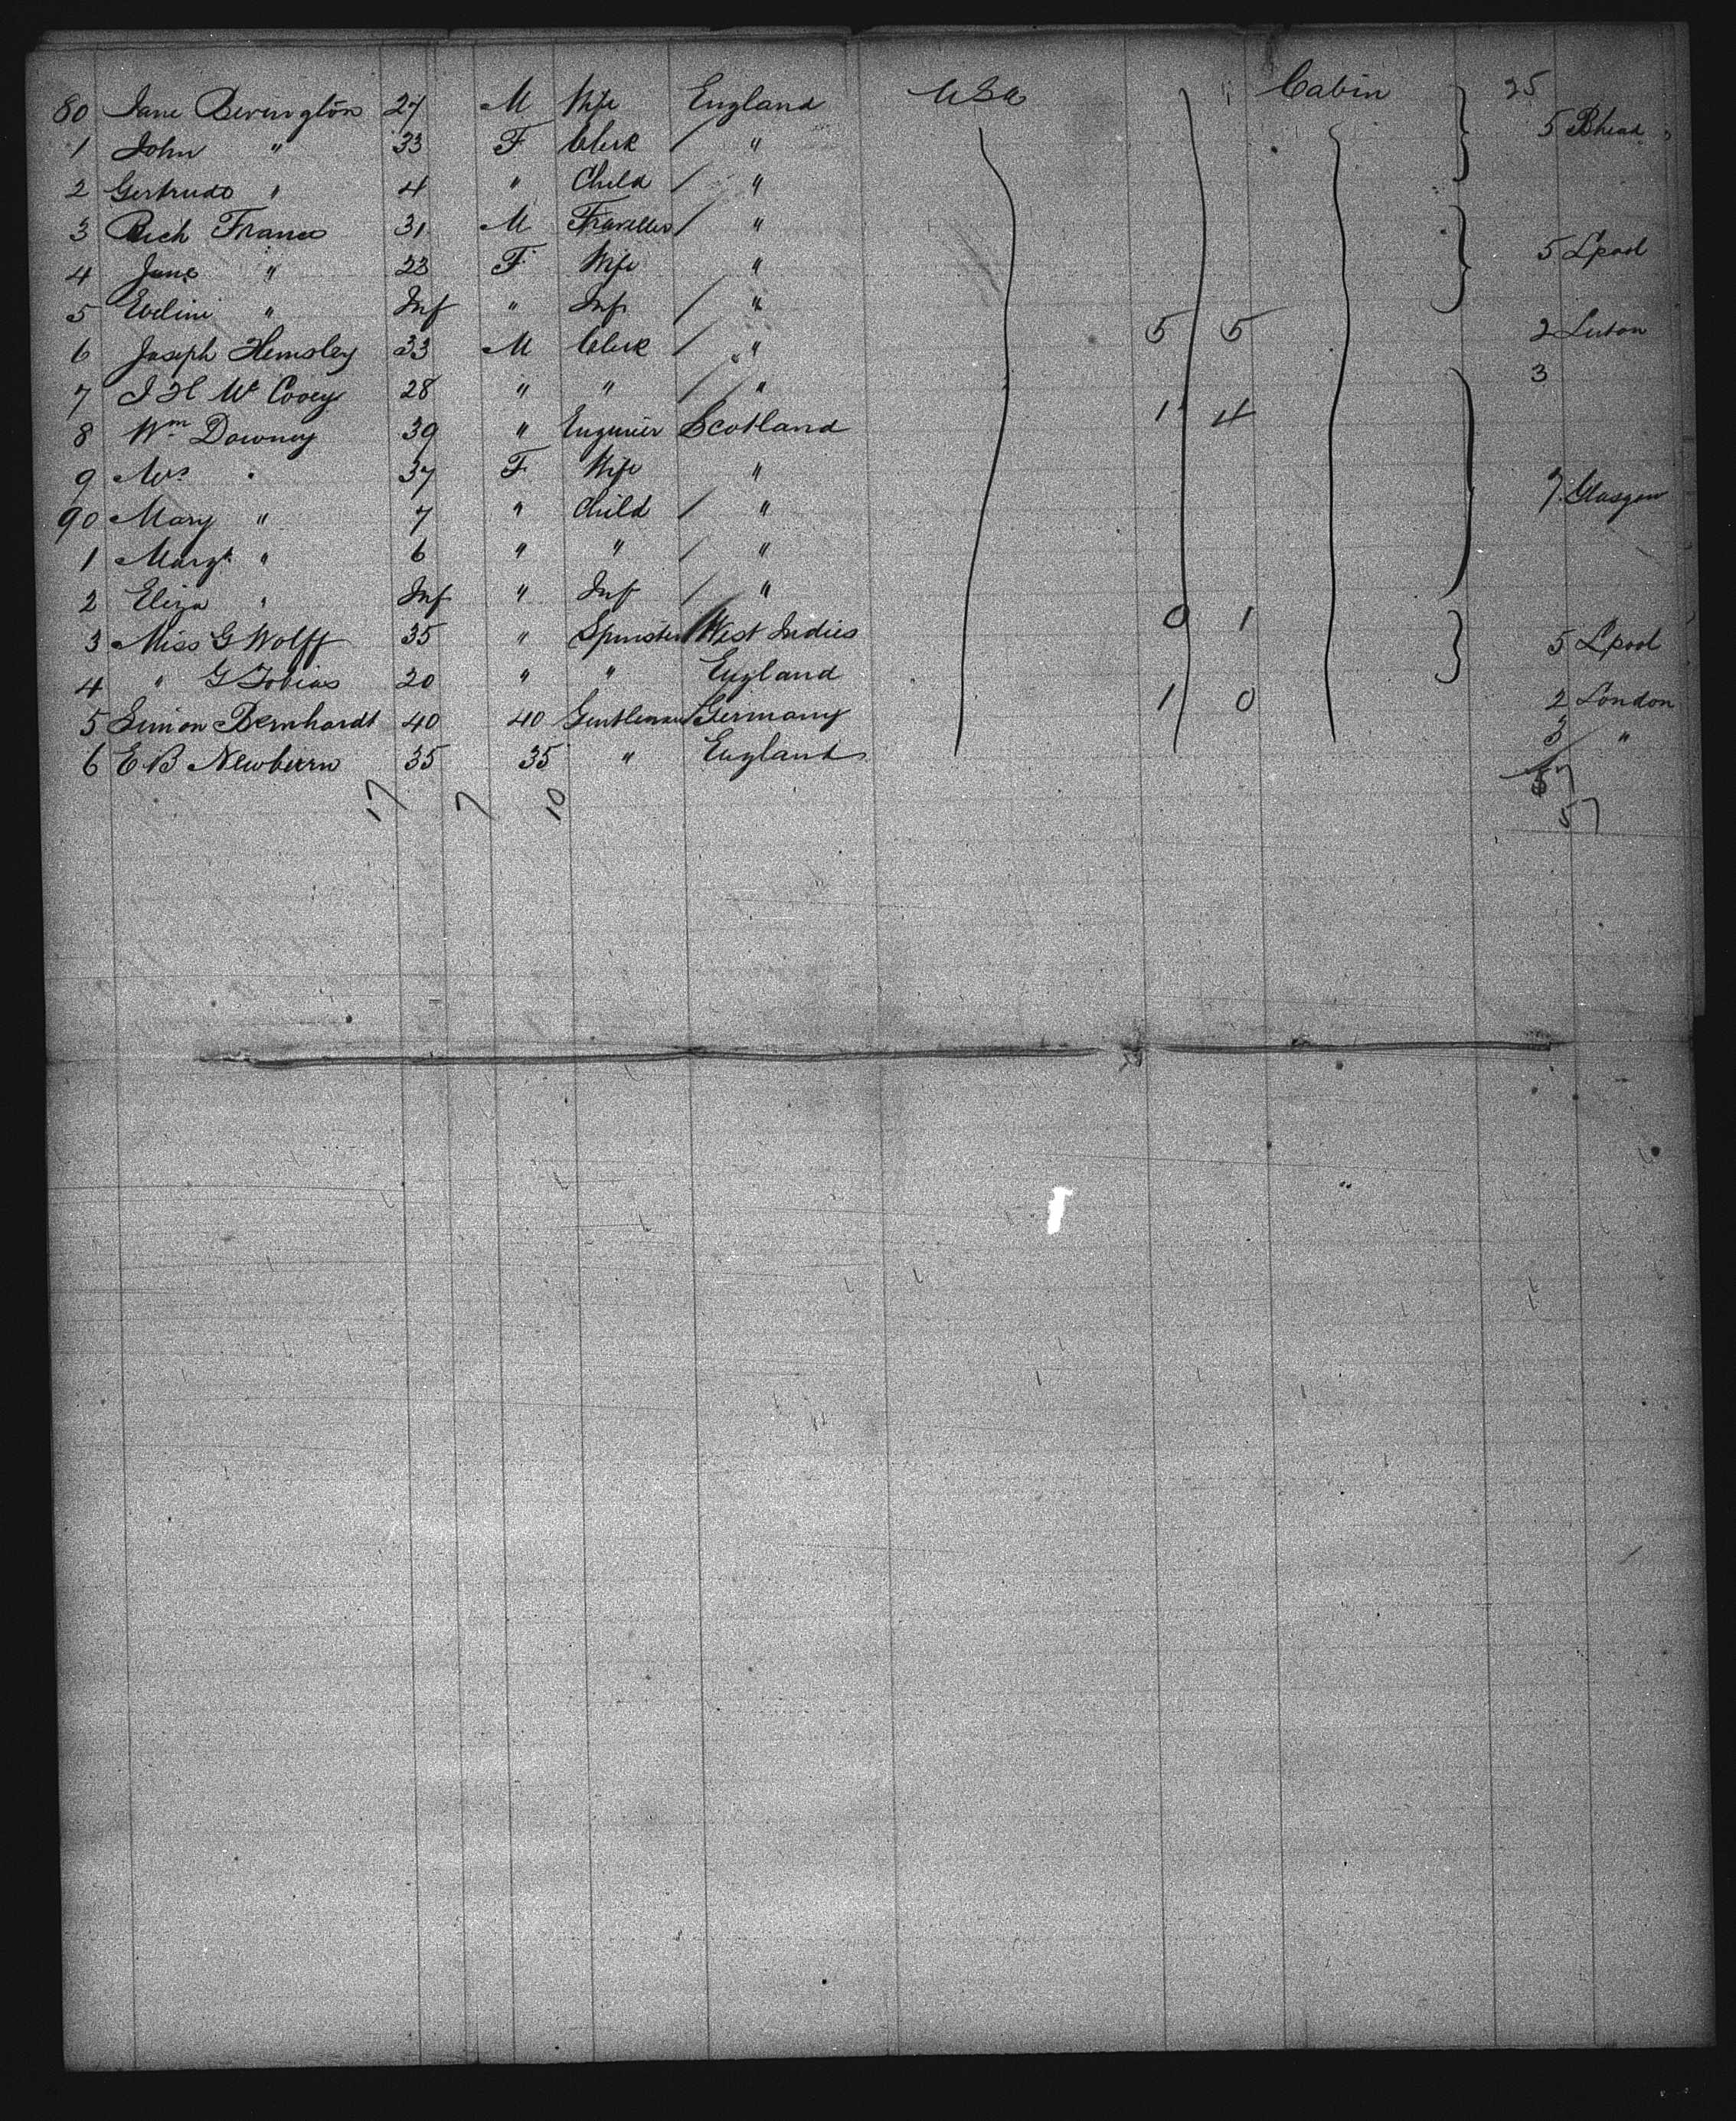 80 Jane Bevington 27 M Wife England USA Cabin 25
1 John " 33 F Clerk / " 5 Bhead
2 Gertrude " 4 " Child / "
3 Rich France 31 M Traveller / "
4 Jane " 23 F Wife " 5 Lpool
5 Eveline " Inf " Inf / "
6 Joseph Hemsley 33 M Clerk / " 5 5 2 Luton
7 J H Mc Covey 28 " " / " 3
8 Wm Downey 39 " Engineer Scotland 1 4
9 Mrs " 37 F Wife "
90 Mary " 7 " Child / " 7 Glasgow
1 Margt " 6 " " / "
2 Eliza " Inf " Inf / "
3 Miss G Wolff 35 " Spinster West Indies 0 1 5 Lpool
4 " G Tobias 20 " " England
5 Simon Bernhardt 40 40 Gentleman Germany 1 0 2 London
6 E B Newburn 35 35 " England 3 "
17 7 10 57
57